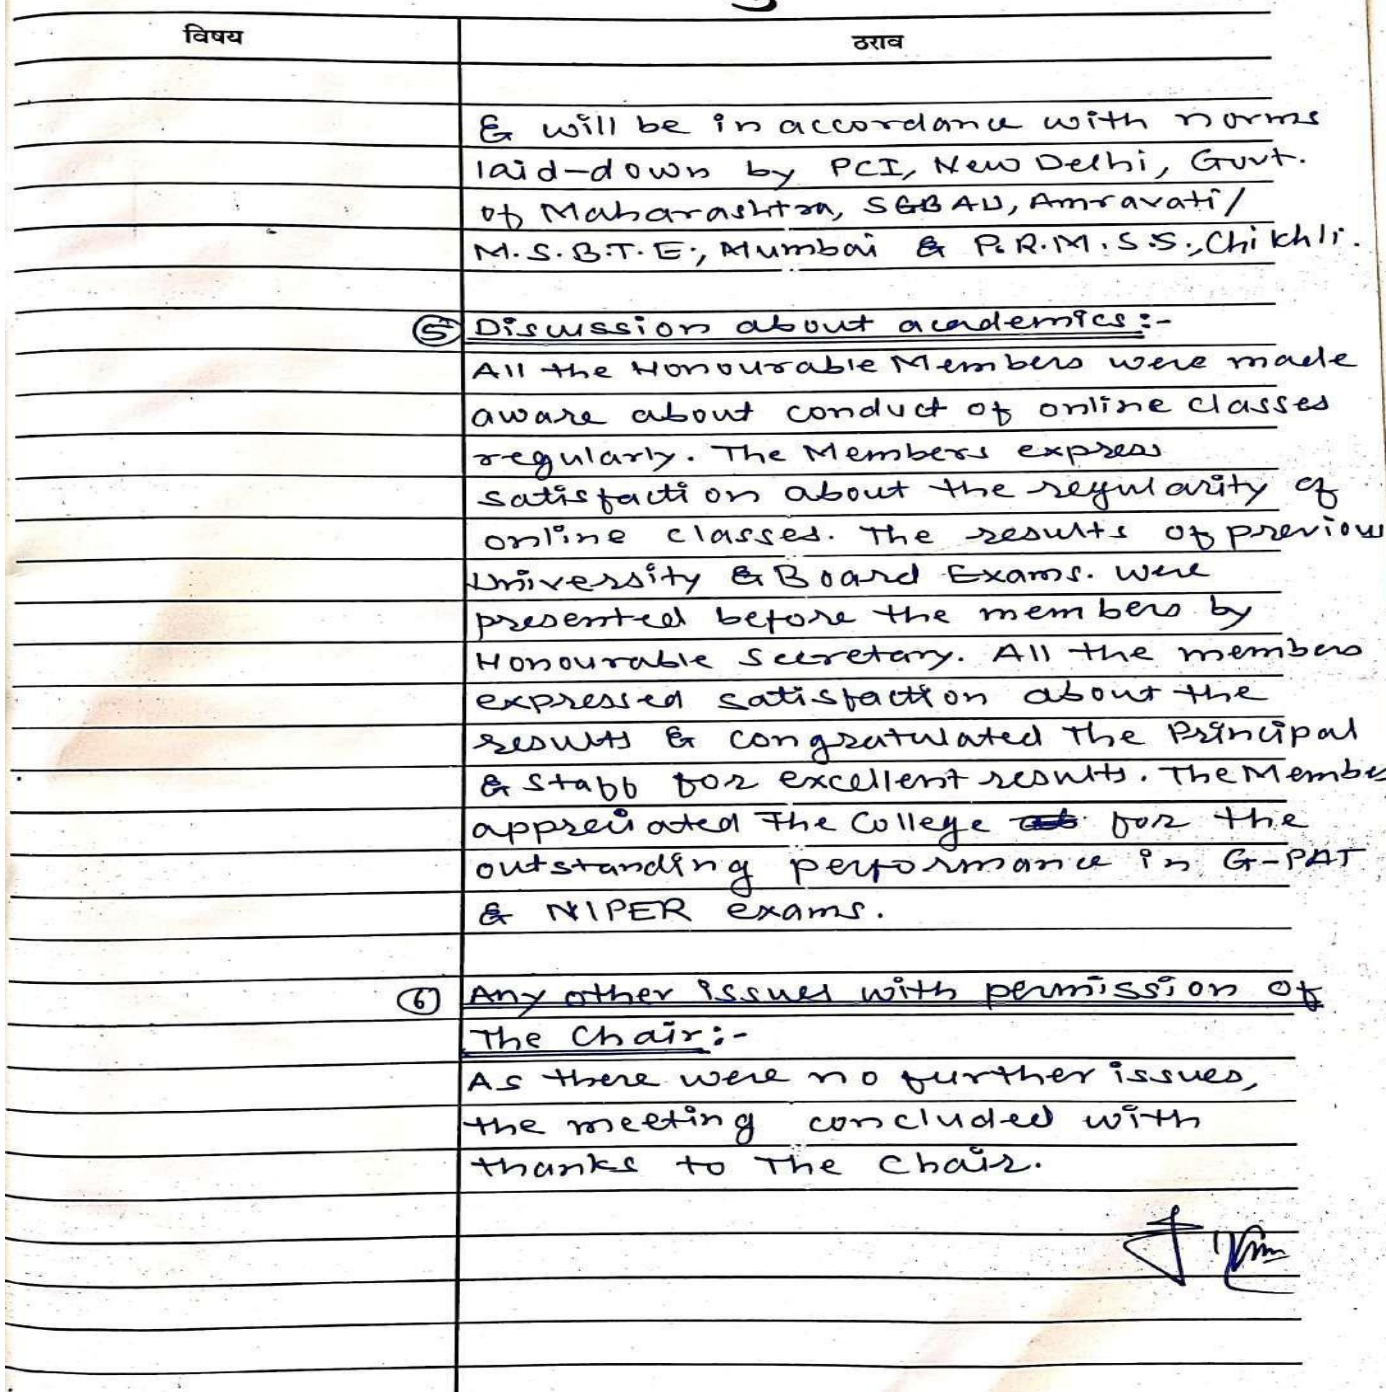 विषय
ठराव
& will be in accordance with norms
laid-down by PCI, New Delhi, Govt.
of Maharashtra, SGBAU, Amravati/
M.S.B.T.E., Mumbai & P.R.M.S.S., Chikhli.
⑤ Discussion about academics:-
All the Honourable Members were made
aware about conduct of online classes
regularly. The Members express
satisfaction about the regularity of
online classes. The results of previous
University & Board Exams. were
presented before the members by
Honourable Secretary. All the members
expressed satisfaction about the
results & congratulated The Principal
& staff for excellent results. The Membe
appreciated The College for the
outstanding performance in G-PAT
& NIPER exams.
⑥ Any other issues with permission of
The Chair:-
As there were no further issues,
the meeting concluded with
thanks to The Chair.